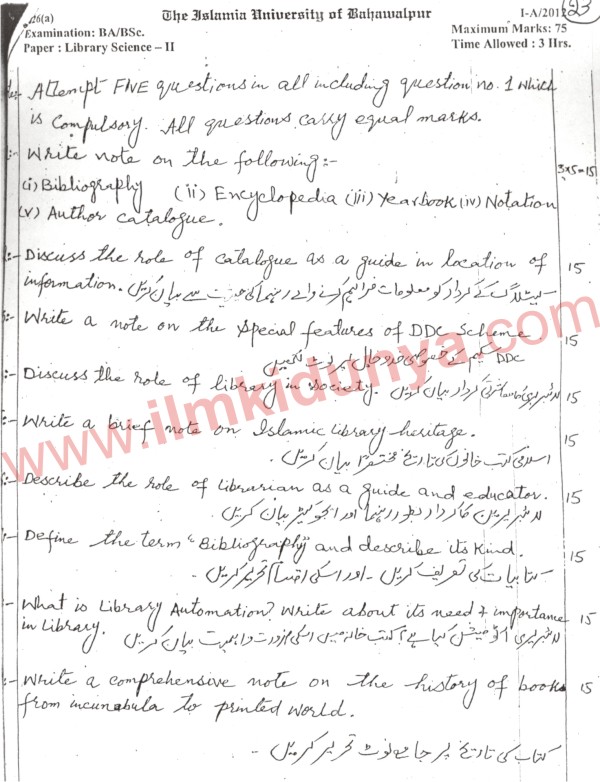 26(a) The Islamia University of Bahawalpur I-A/2012 23
Examination: BA/BSc. Maximum Marks: 75
Paper : Library Science – II Time Allowed : 3 Hrs.
Attempt FIVE questions in all including question no. 1 which
is Compulsory. All questions carry equal marks.
:- Write note on the following:- 3x5=15
(i) Bibliography (ii) Encyclopedia (iii) Yearbook (iv) Notation
(v) Author catalogue.
:- Discuss the role of catalogue as a guide in location of 15
information. کیٹلاگ کے کردار کو معلومات فراہم کرنے والے رہنما کی حیثیت سے بیان کریں
:- Write a note on the special features of DDC Scheme. 15
DDC سکیم کے خصوصی خدوخال پر نوٹ لکھیں
:- Discuss the role of library in society. لائبریری کا معاشرتی کردار بیان کریں 15
:- Write a brief note on Islamic library heritage. 15
اسلامی کتب خانوں کی تاریخ مختصراً بیان کریں۔
:- Describe the role of Librarian as a guide and educator. 15
لائبریرین کا کردار بطور رہنما اور ایجوکیٹر بیان کریں
:- Define the term "Bibliography" and describe its kind. 15
کتابیات کی تعریف کریں۔ اور اسکی اقسام تحریر کریں۔
:- What is Library Automation? Write about its need & importance 15
in library. لائبریری آٹومیشن کیا ہے؟ کتب خانہ میں اسکی ضرورت و اہمیت بیان کریں
:- Write a comprehensive note on the history of books 15
from incunabula to printed world.
کتاب کی تاریخ پر جامع نوٹ تحریر کریں۔
www.ilmkidunya.com